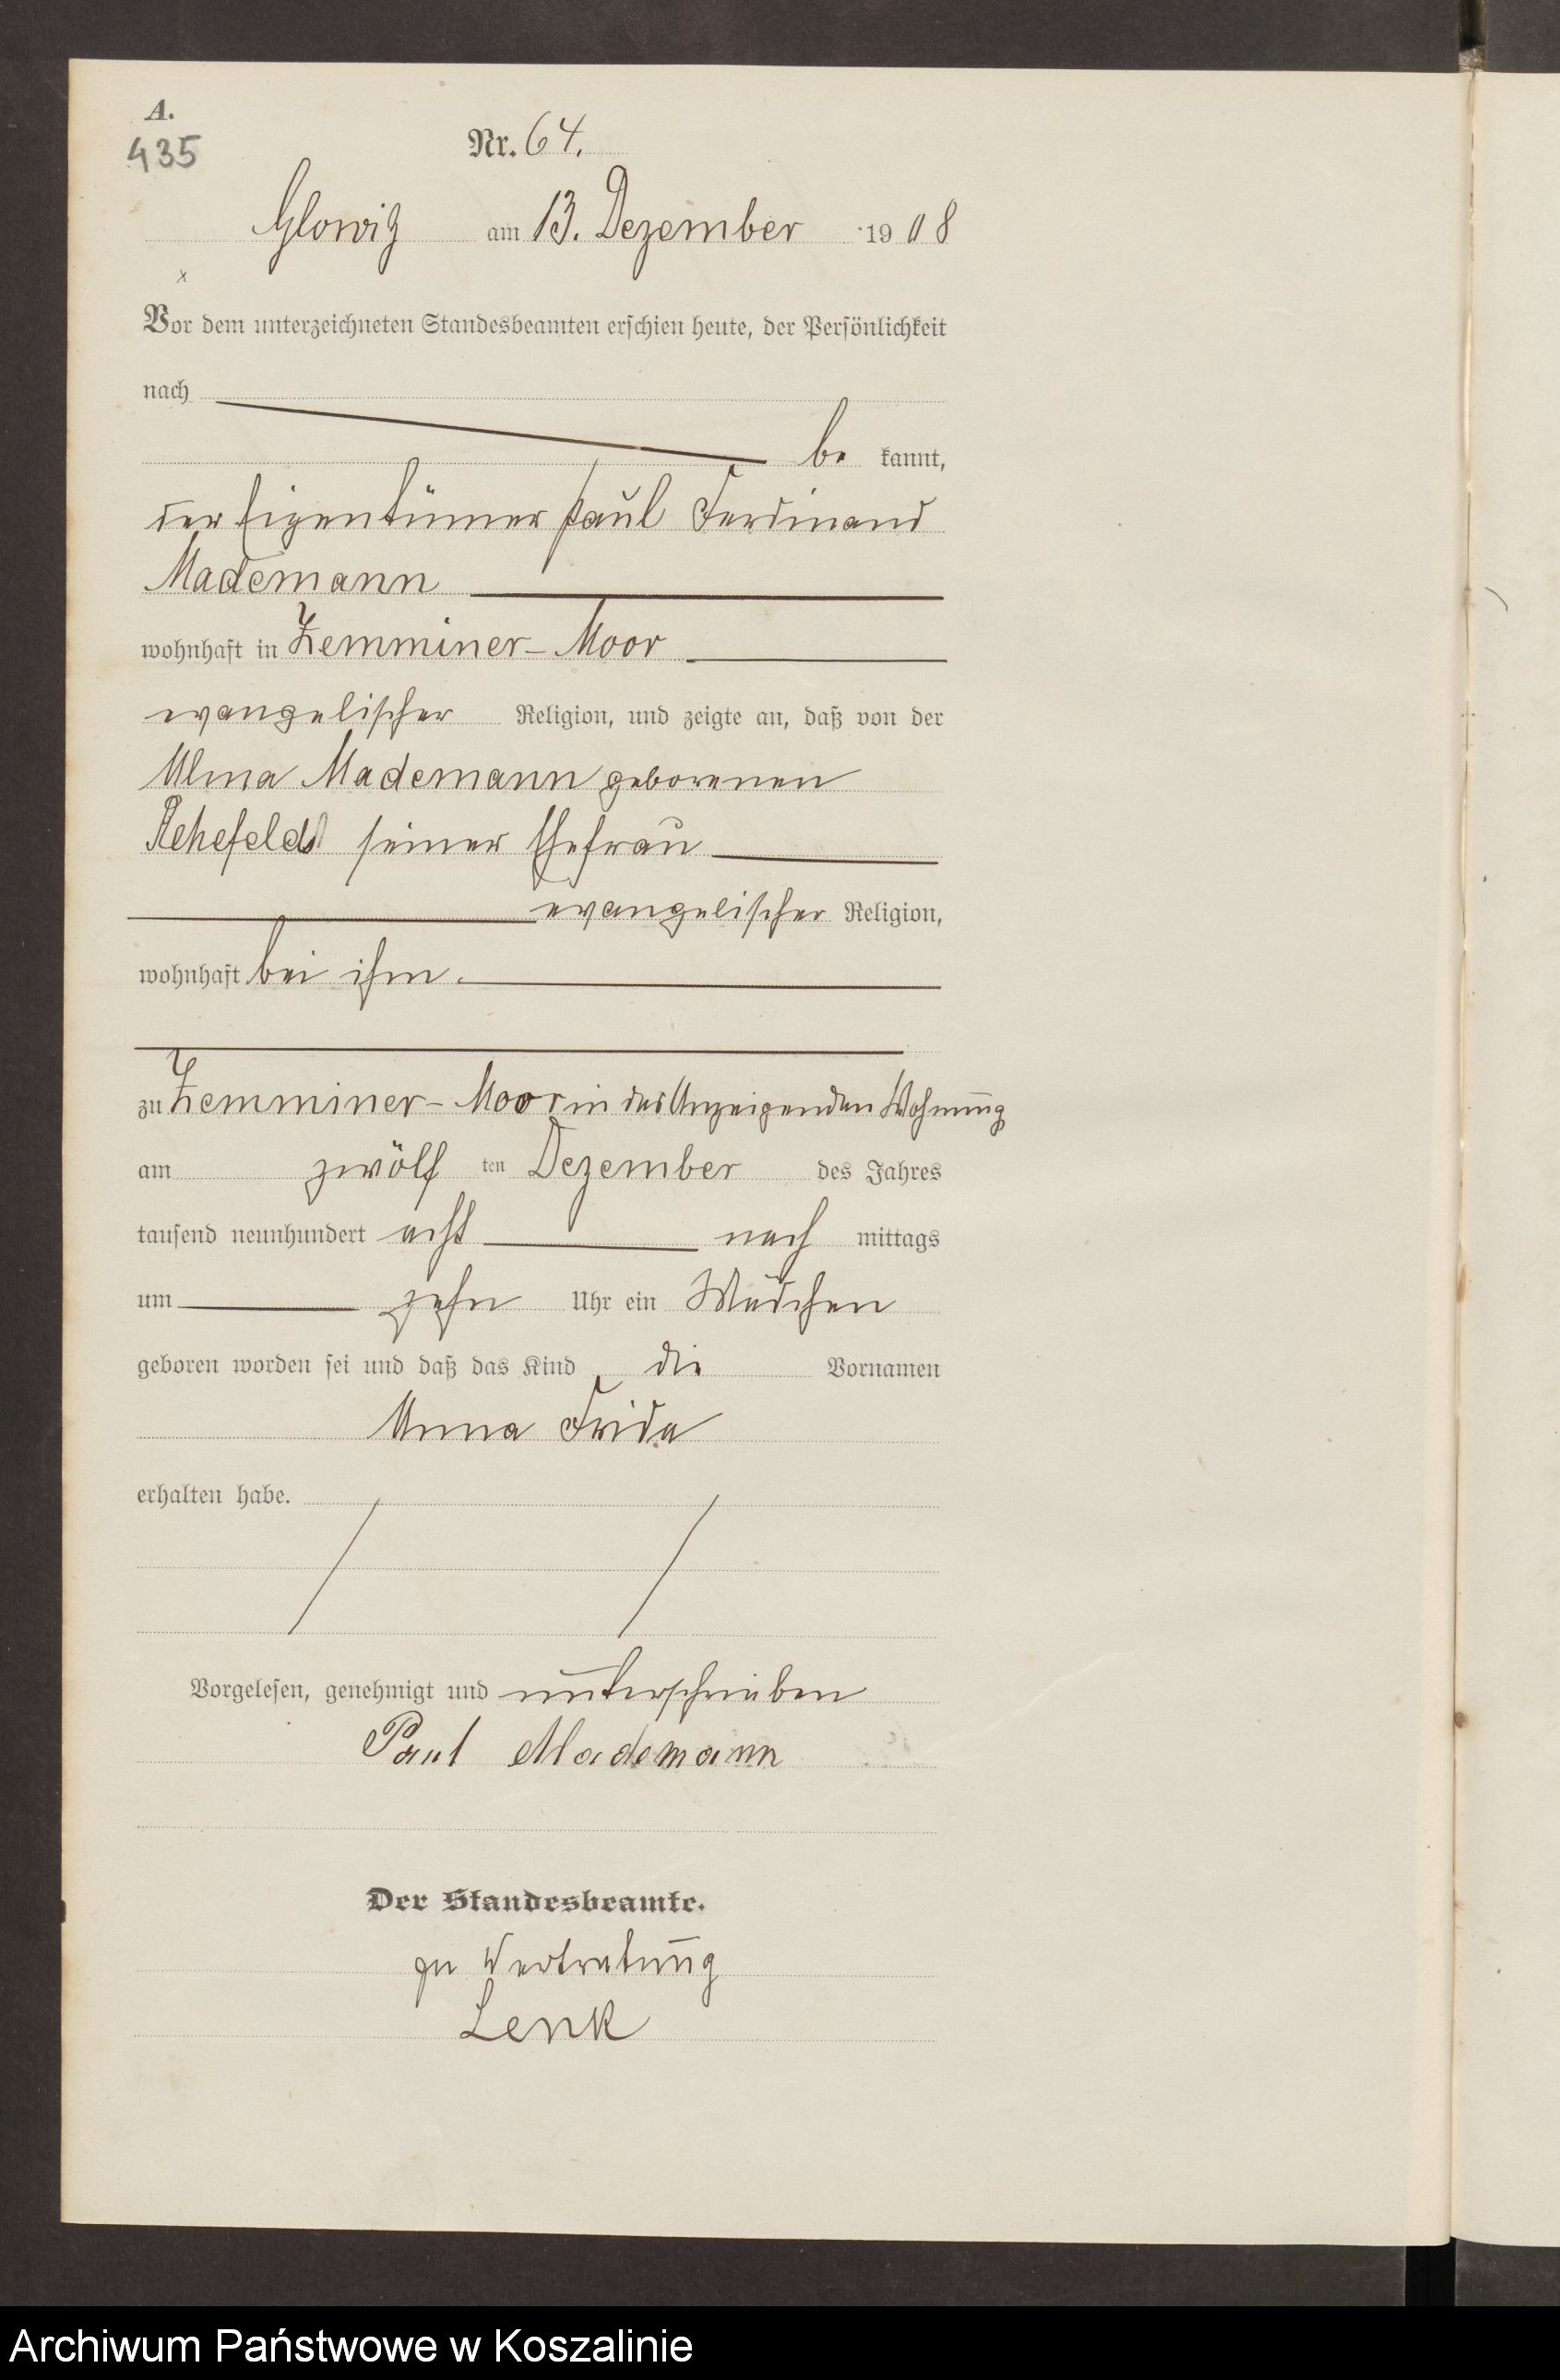 A.
435
Nr. 64.
Glowitz am 13. Dezember 1908
Vor dem unterzeichneten Standesbeamten erschien heute, der Persönlichkeit
nach
be kannt,
der Eigentümer Paul Ferdinand
Mademann
wohnhaft in Zemminer-Moor
evangelischer Religion, und zeigte an, daß von der
Alma Mademann geborenen
Rehefeld seiner Ehefrau
evangelischer Religion,
wohnhaft bei ihm.
zu Zemminer-Moor in des Anzeigenden Wohnung
am zwölf ten Dezember des Jahres
tausend neunhundert acht nach mittags
um zehn Uhr ein Mädchen
geboren worden sei und daß das Kind die Vornamen
Anna Frida
erhalten habe.
Vorgelesen, genehmigt und unterschrieben
Paul Mademann
Der Standesbeamte.
In Vertretung
Lenk
Archiwum Państwowe w Koszalinie